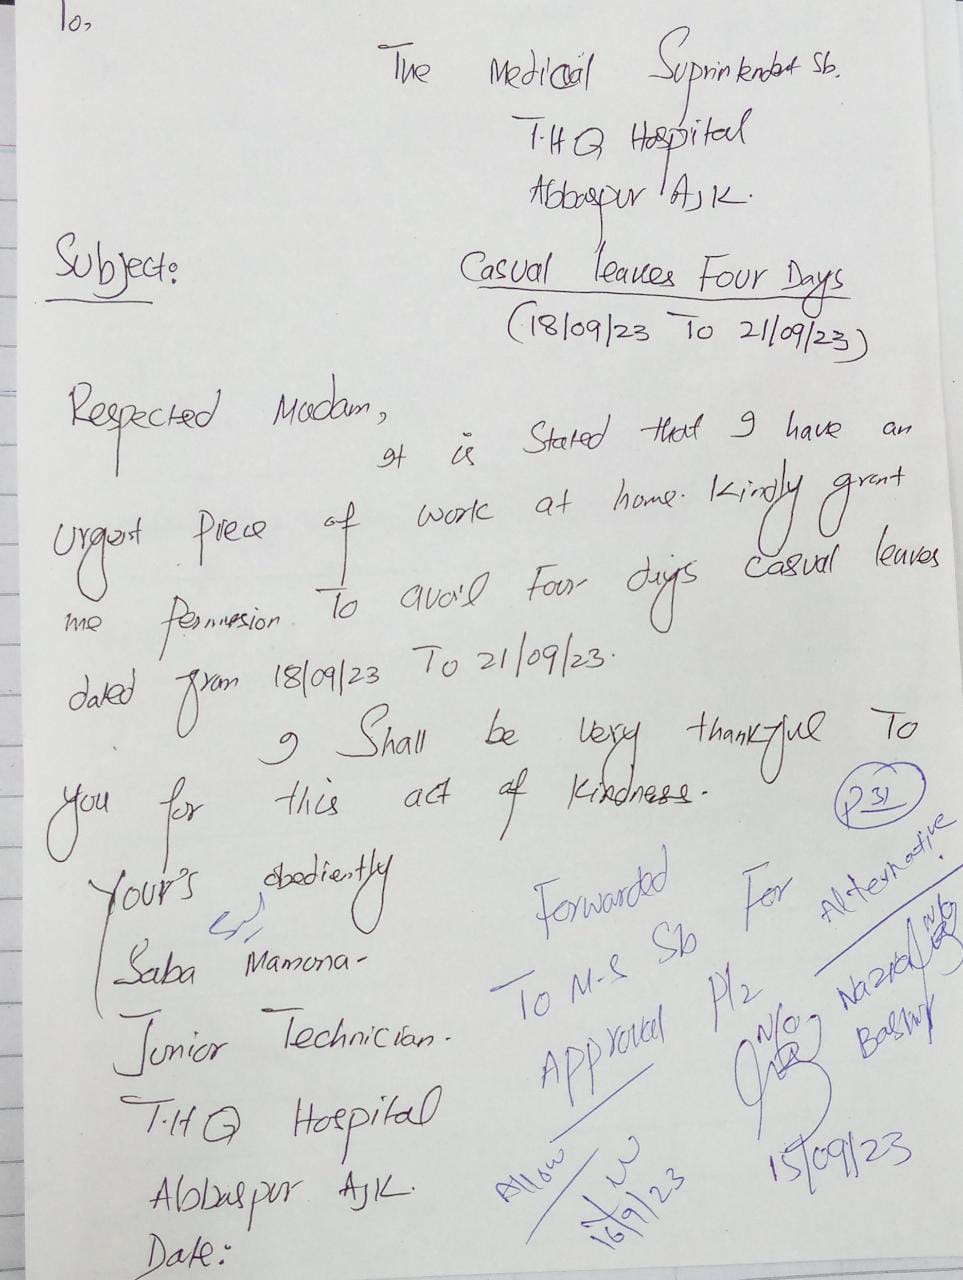 To,
The Medical Suprintendent Sb.
T.H.Q Hospital
Abbaspur AJK.
Subject:
Casual leaves Four Days
(18/09/23 To 21/09/23)
Respected Madam,
It is Stated that I have an
urgent Piece of work at home. Kindly grant
me Permission To avail Four days casual leaves
dated from 18/09/23 To 21/09/23.
I Shall be very thankful To
you for this act of kindness.
Your's obediently
Saba Mamona-
Junior Technician.
T.H.Q Hospital
Abbaspur AJK.
Date:
P 31
Forwarded
To M-S Sb For
Approval Plz
N/O
15/09/23
Alternative
N/O
Nazia
Bashir
Allow
16/9/23